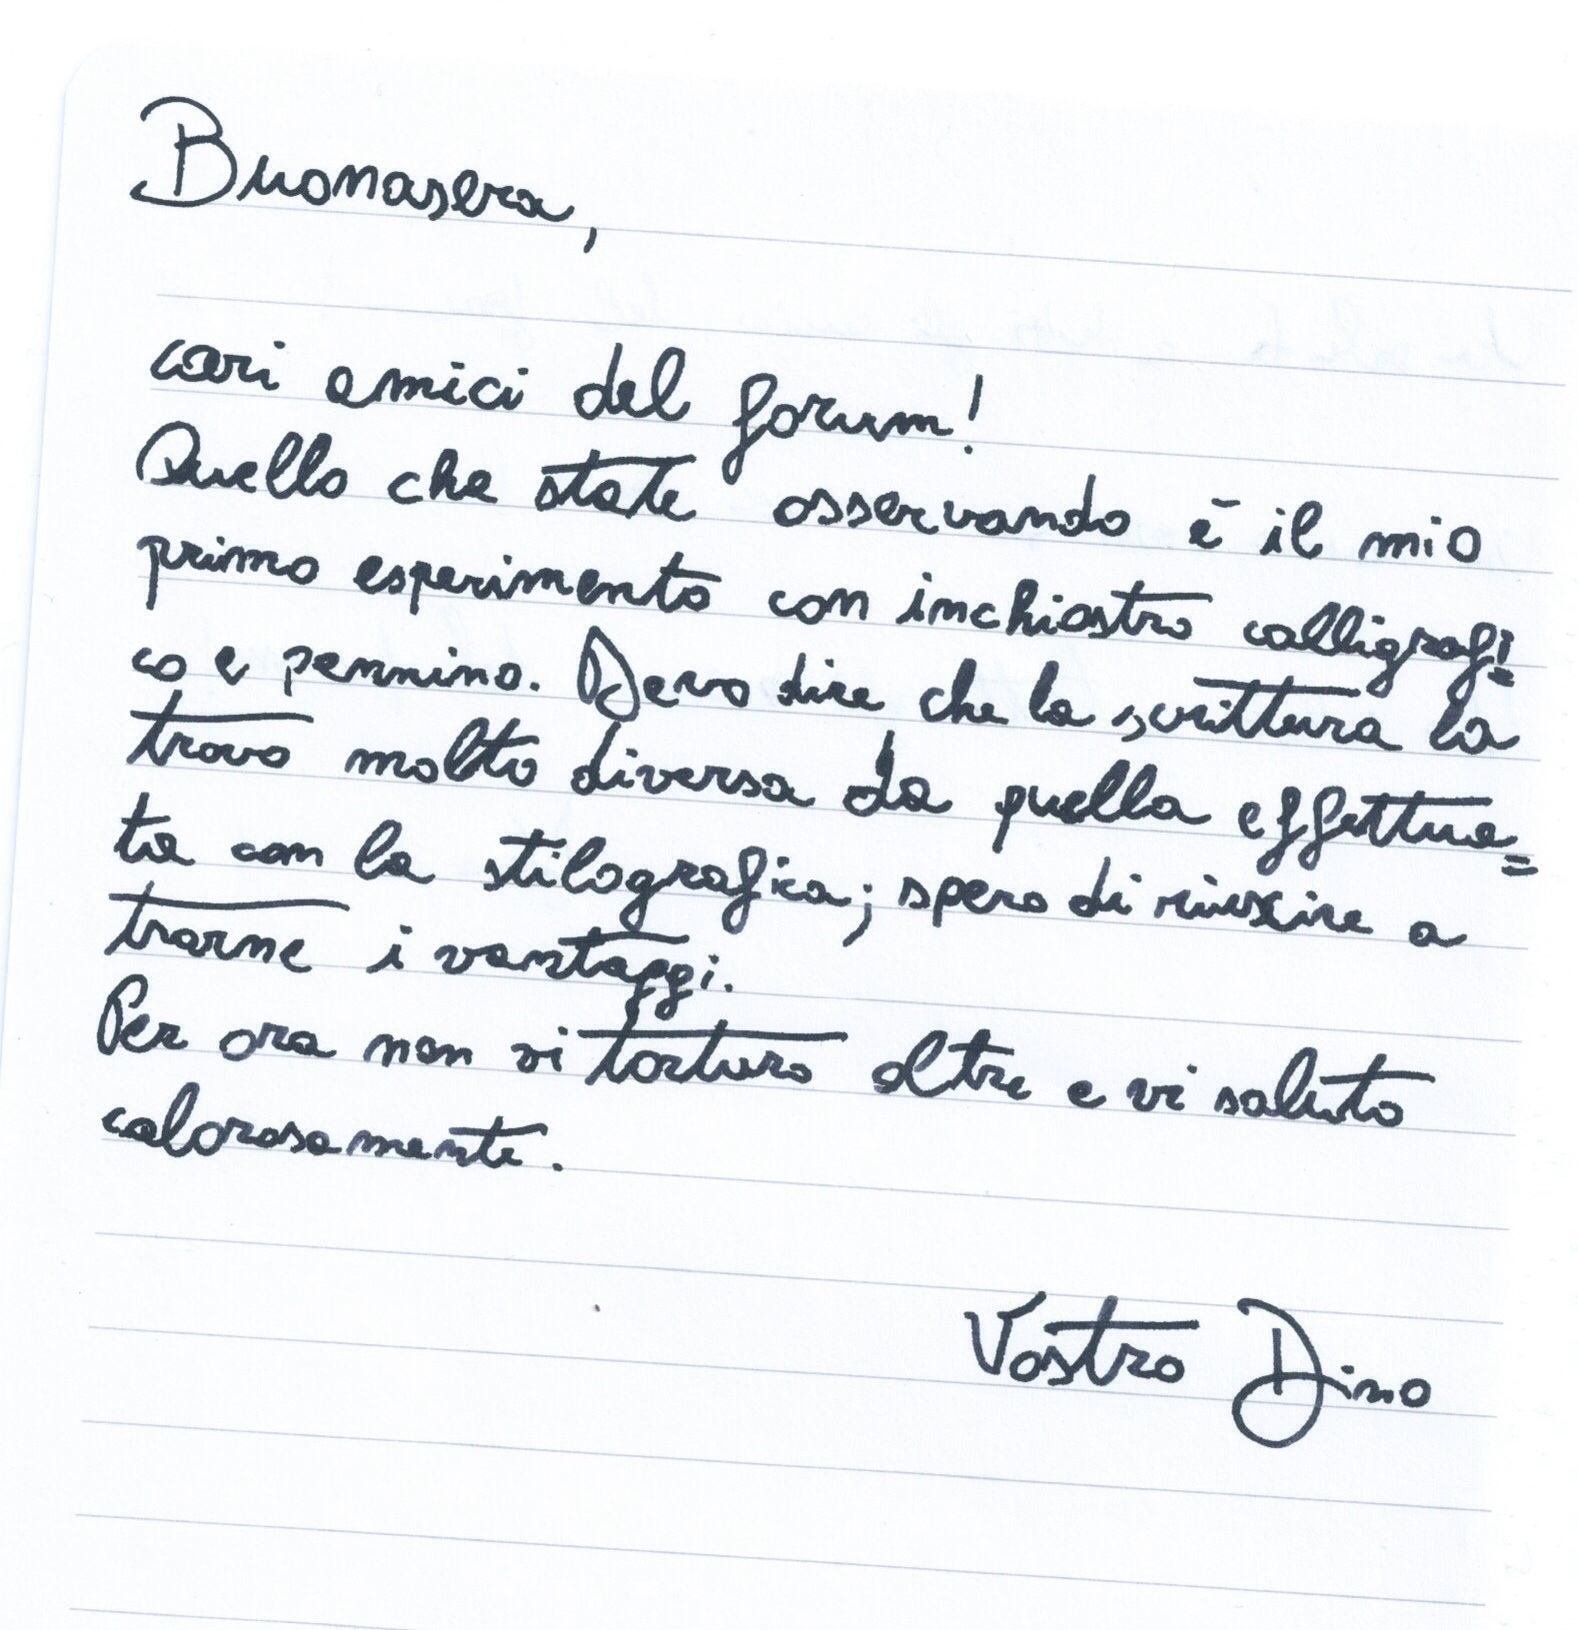 Buonasera,
cari amici del forum!
Quello che state osservando è il mio
primo esperimento con inchiostro calligrafi=
co e pennino. Devo dire che la scrittura la
trovo molto diversa da quella effettua=
ta con la stilografica; spero di riuscire a
trarne i vantaggi.
Per ora non vi torturo oltre e vi saluto
calorosamente.
Vostro Dino